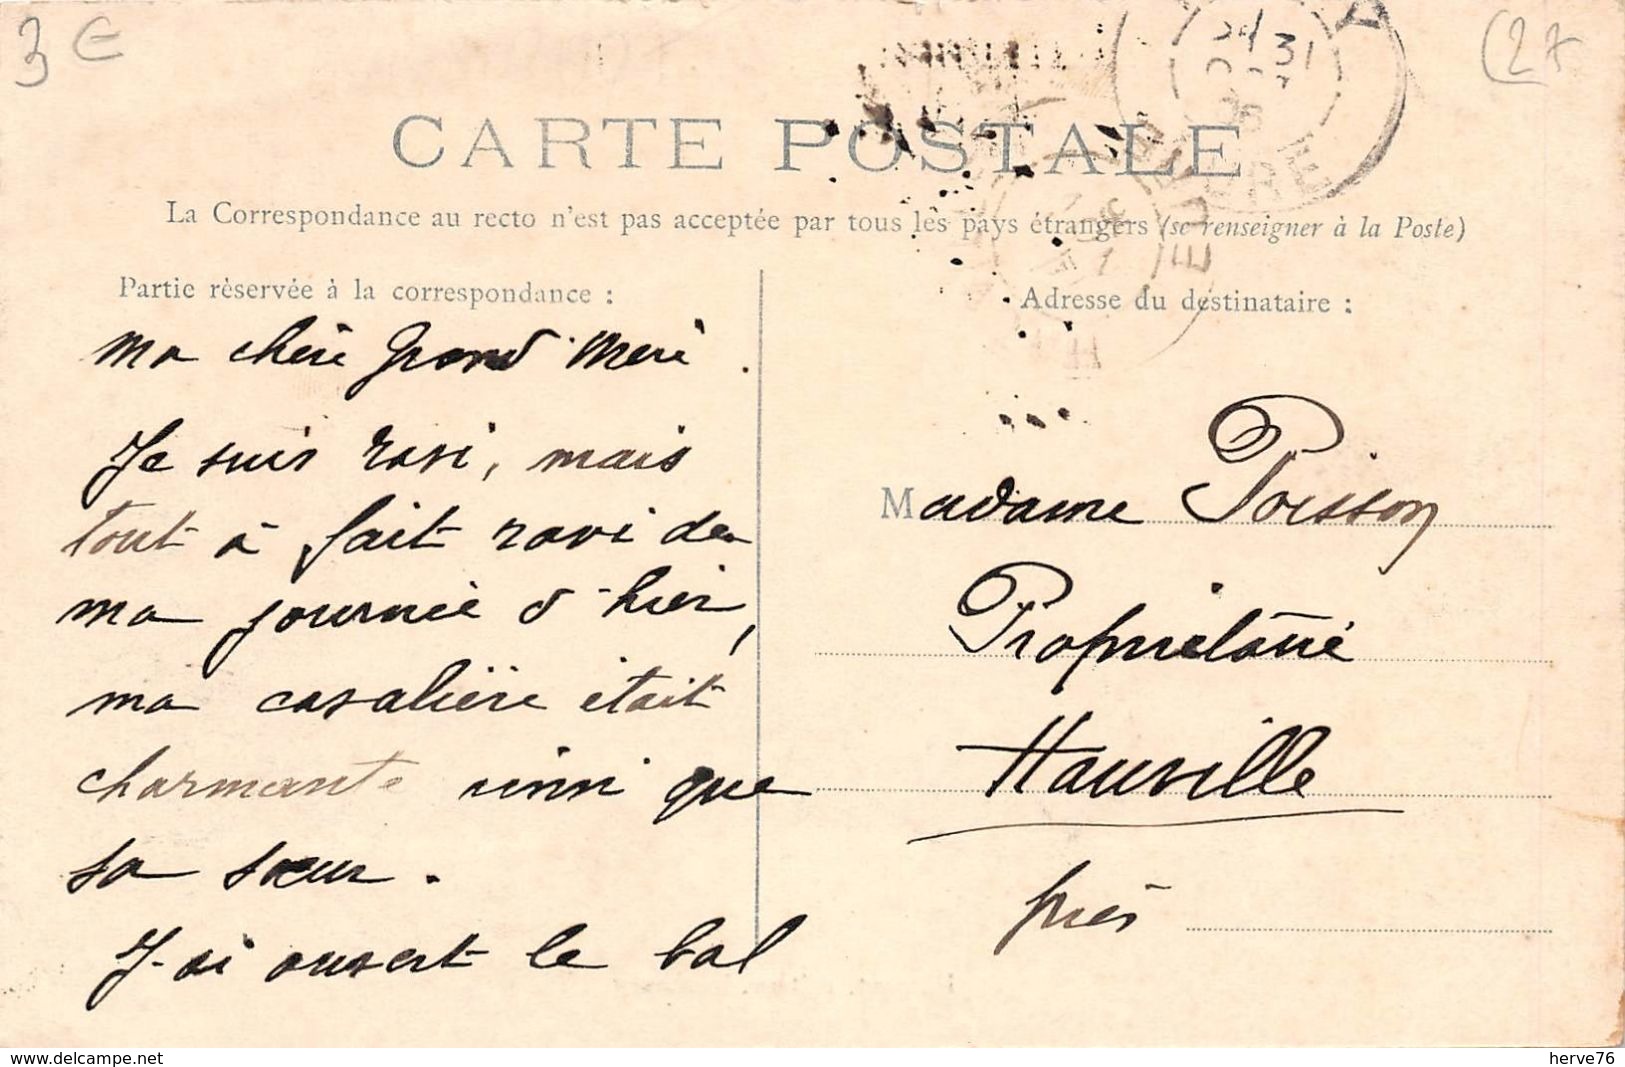 3 €
(27
CARTE POSTALE
La Correspondance au recto n'est pas acceptée par tous les pays étrangers (se renseigner à la Poste)
Partie réservée à la correspondance :
ma chère Grand'Mère.
Je suis ravi, mais
tout à fait ravi de
ma journée d'hier,
ma cavalière était
charmante ainsi que
sa sœur.
J'ai ouvert le bal
Adresse du destinataire :
Madame Poisson
Propriétaire
Hauville
près
31
EURE
www.delcampe.net
herve76